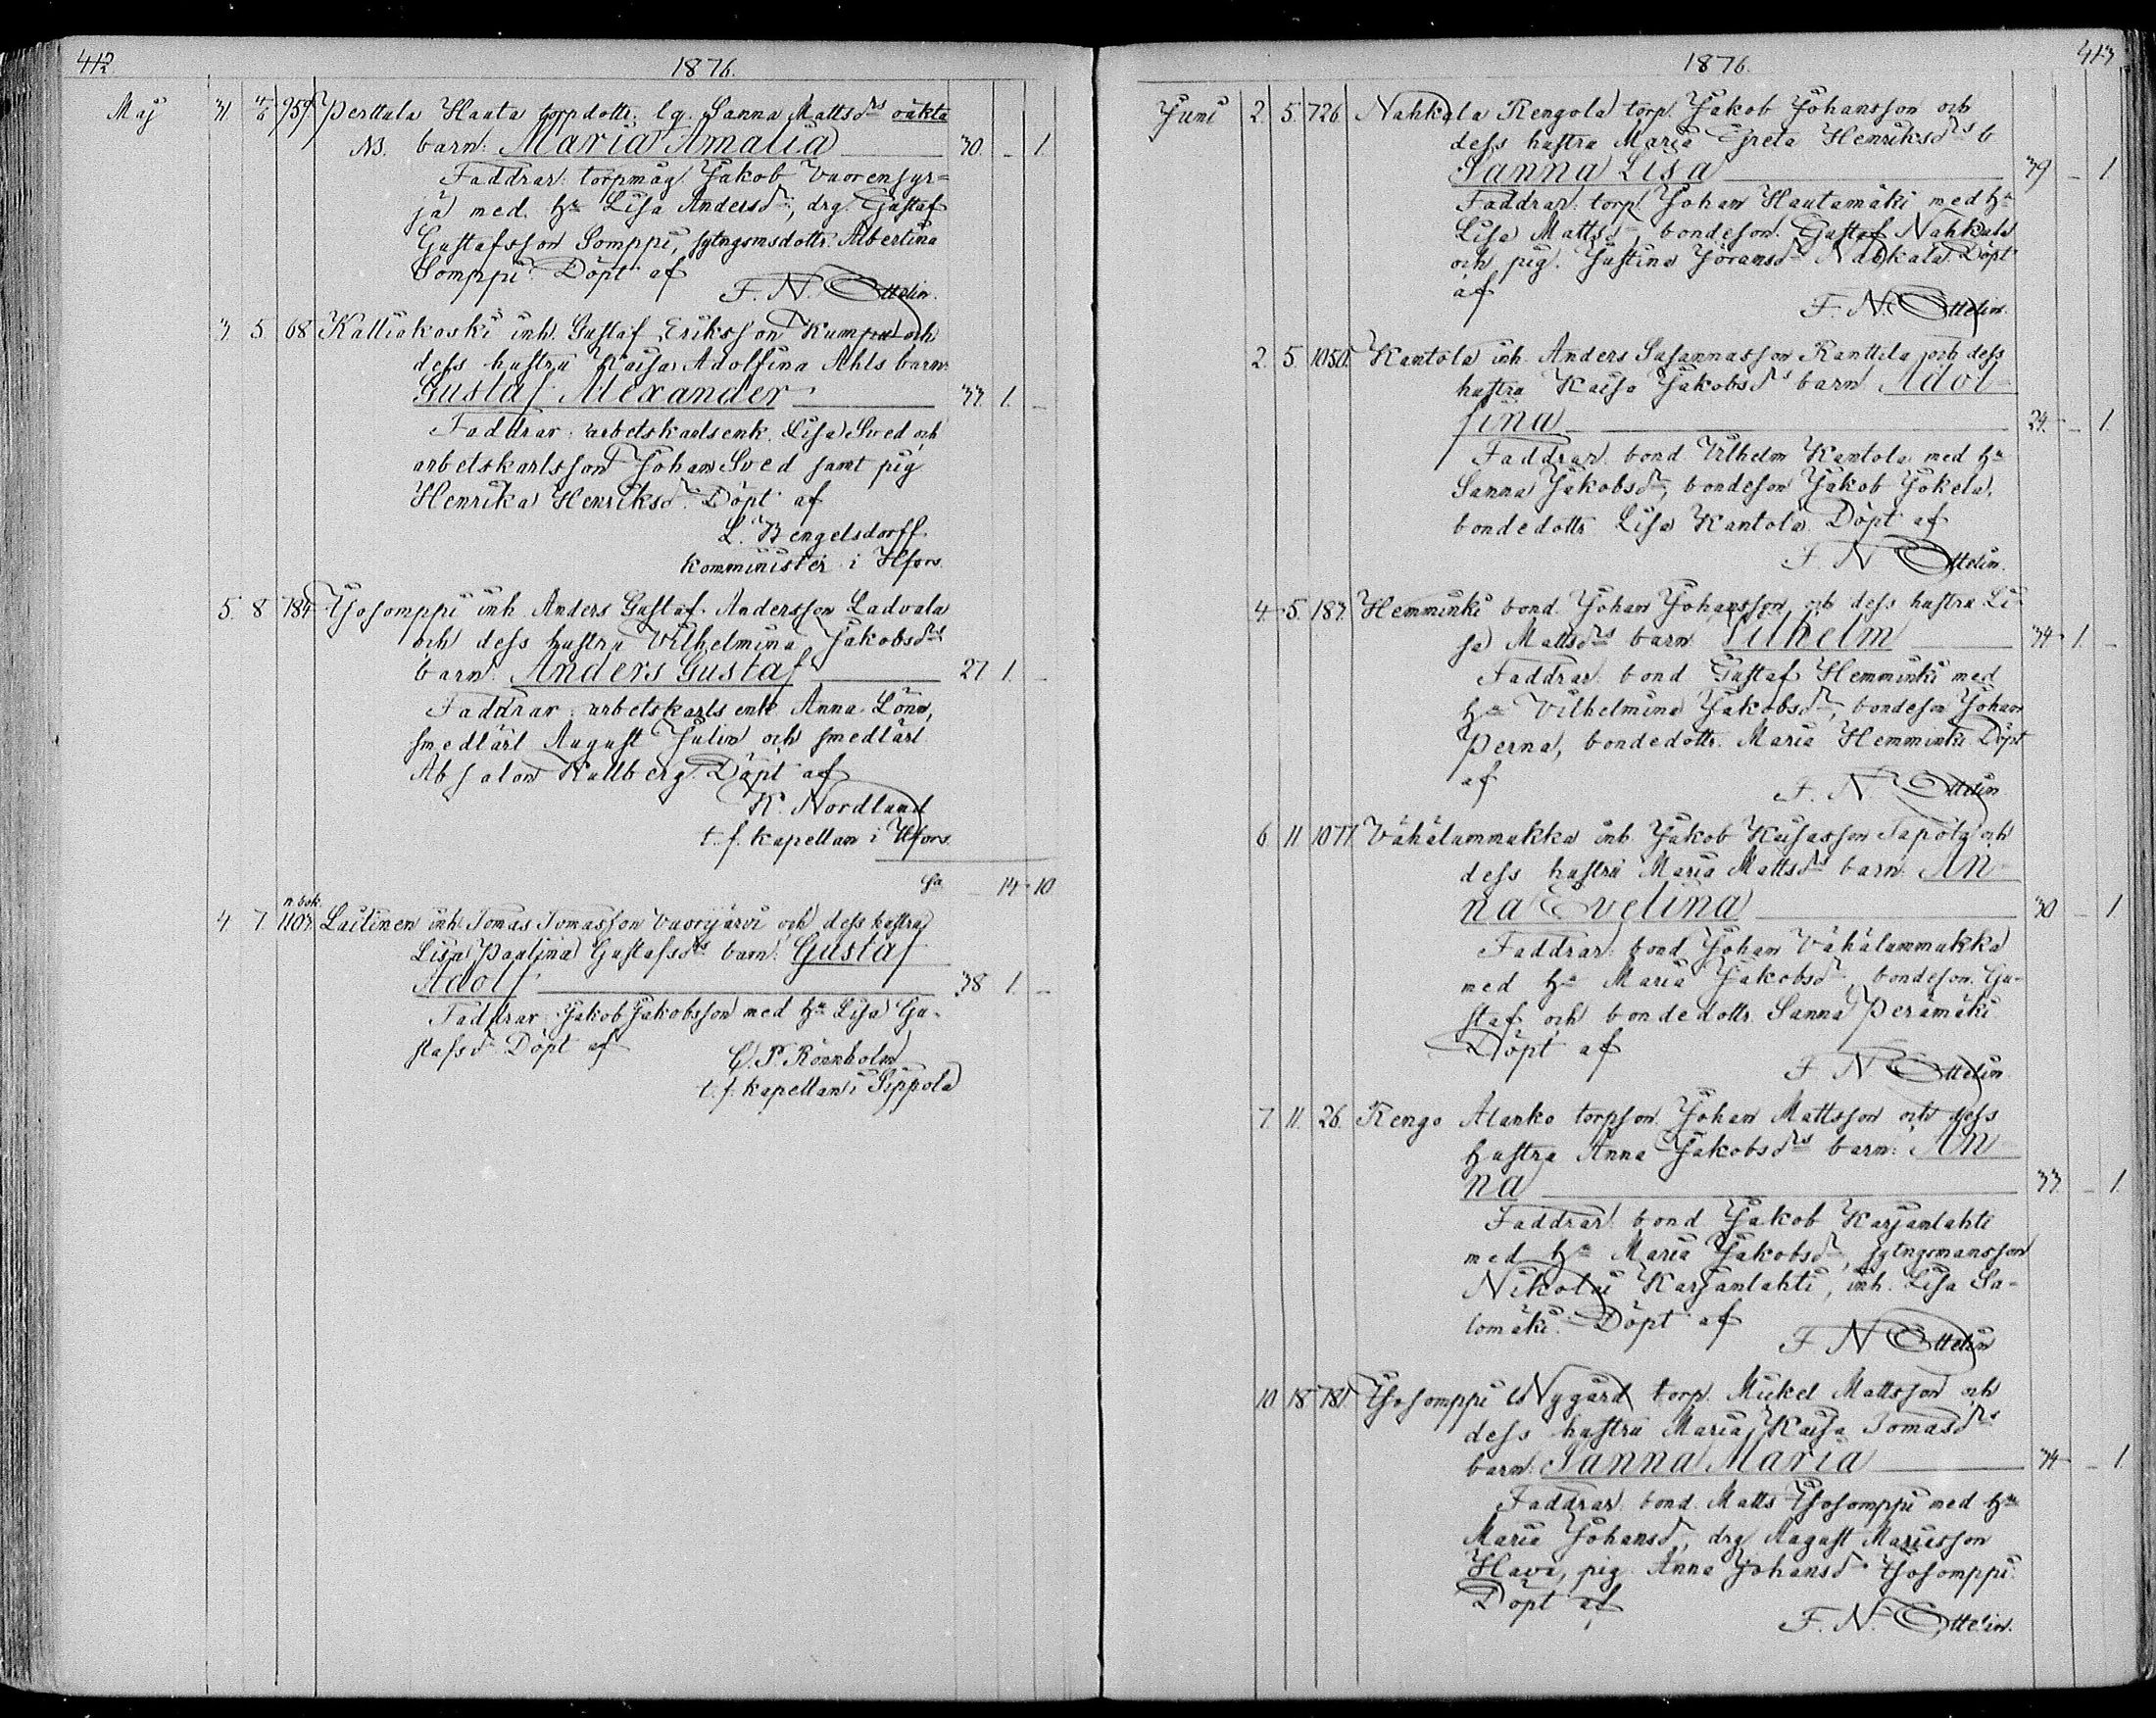 412.
1876.
Maj 31 4/6 959. Perttula Haata torpdottr. lg. Sanna Mattsdrs oäkta
NB. barn: Maria Amalia 30. – 1.
Faddrar: torpmåg. Jakob Vuorensyr-
jä med hu Lisa Andersdr, drg. Gustaf
Gustafsson Somppi, sytngsmsdottr. Albertina
Somppi. Döpt af
F. N. Ottelin.
3. 5. 68 Kalliokoski inh. Gustaf Eriksson Kumpu och
dess hustru Kaisa Adolfina Ahls barn:
Gustaf Alexander 33. 1. –
Faddrar: arbetskarlsenk. Lisa Sved och
arbetskarlsson Johan Sved samt pig
Henrika Henriksdr. Döpt af
L. Bengelsdorff.
komminister i Hfors.
5. 8 784 Yhosomppi inh. Anders Gustaf Andersson Ladvala
och dess hustru Vilhelmina Jakobsdrs
barn: Anders Gustaf 27 1. –
Faddrar: arbetskarlsenk Anna Lönn,
smedlärl August Julin och smedlärl
Absalon Kullberg. Döpt af
K. Nordlund
t. f. kapellan i Hfors.
Sa – 14 – 10
n. bok.
4 7. 1107. Lailinen inh. Tomas Tomasson Vuorijärvi och dess hustru
Lisa Paulina Gustafsdrs barn: Gustaf
Adolf 38 1. –
Faddrar: Jakob Jakobsson med hu Lisa Gu-
stafsdr. Döpt af
C. P. Rönnholm
t. f. kapellan i Sippola
413
1876.
Juni 2. 5. 726. Nahkala Rengola torp. Jakob Johansson och
dess hustru Maria Greta Henriksdrs b
Sanna Lisa 39 – 1
Faddrar: torp. Johan Hautamäki med hu
Lisa Mattsdr, bondeson. Gustaf Nahkala
och pig. Justina Jöransdr Nahkala. Döpt
af
F. N. Ottelin.
2. 5. 1050. Kantola inh. Anders Susannasson Ranttila och dess
hustru Kaisa Jakobsdrs barn Adol-
fina 24. – 1
Faddrar: bond Vilhelm Kantola med hu
Sanna Jakobsdr, bondeson Jakob Jokela,
bondedottr Lisa Kantola. Döpt af
F. N Ottelin.
4. 5. 187. Hemminki bond. Johan Johansson och dess hustru Li-
sa Mattsdrs barn Vilhelm 34 1. –
Faddrar: bond Gustaf Hemminki med
hu Vilhelmina Jakobsdr, bondeson Johan
Perna, bondedottr. Maria Hemminki Döpt
af
F. N. Ottelin
6 11 1077. Vähälummukka inh. Jakob Kaisasson Tapola och
dess hustru Maria Mattsdrs barn: An-
na Evelina 30 – 1
Faddrar: bond Johan Vähälummukka
med hu Maria Jakobsdr, bondeson. Gu-
staf och bondedottr Sanna Perämäki
Döpt af
F. N Ottelin
7. 11. 26. Rengo Alanko torpson Johan Mattsson och dess
hustru Anna Jakobsdrs barn: An-
na 33. – 1.
Faddrar: bond Jakob Karjanlahti
med hu Maria Jakobsdr, sytngsmansson
Nikolai Karjanlahti, inh. Lisa Sa-
lomäki. Döpt af
F. N Ottelin
10 18 781. Yhosomppi Nygård torp. Mickel Mattsson och
dess hustru Maria Kaisa Tomasdrs
barn: Sanna Maria 34 – 1
Faddrar: bond. Matts Yhosomppi med hu
Maria Johansdr, drg August Mariasson
Hava, pig. Anna Johansdr Yhosomppi.
Döpt af
F. N. Ottelin.